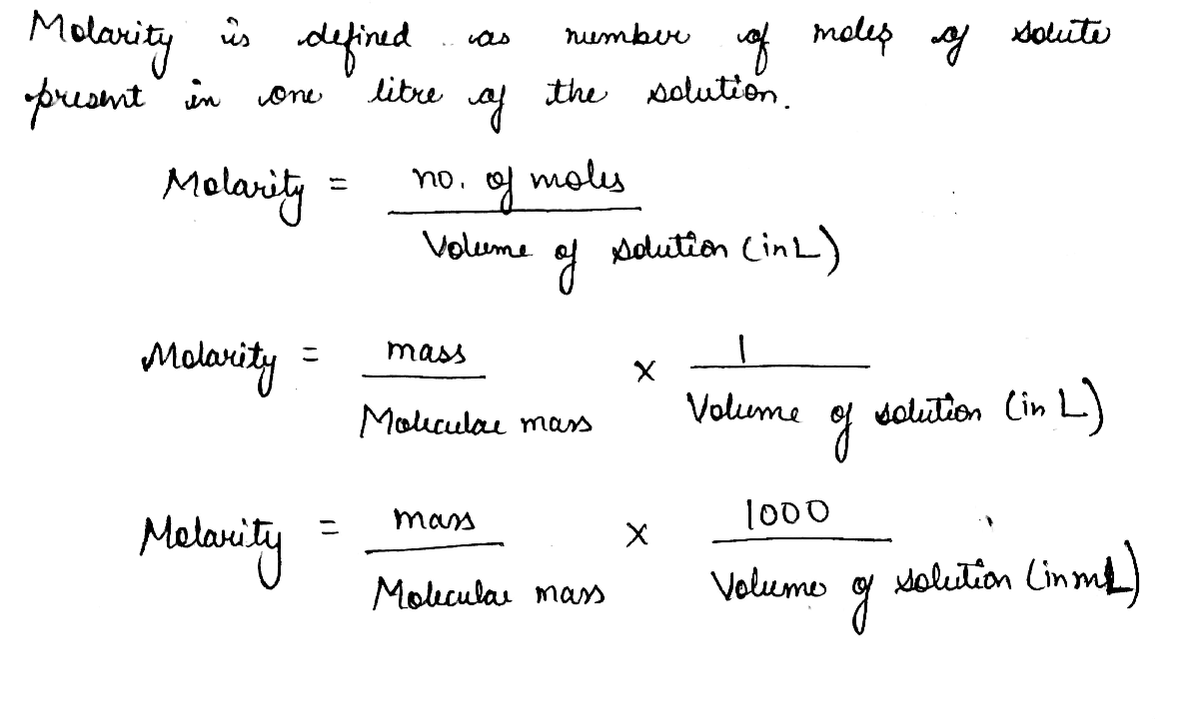 Molarity is defined as number of moles of solute
present in one litre of the solution.
Molarity = no. of moles
Volume of solution (in L)
Molarity = mass × 1
Molecular mass Volume of solution (in L)
Molarity = mass × 1000
Molecular mass Volume of solution (in mL)